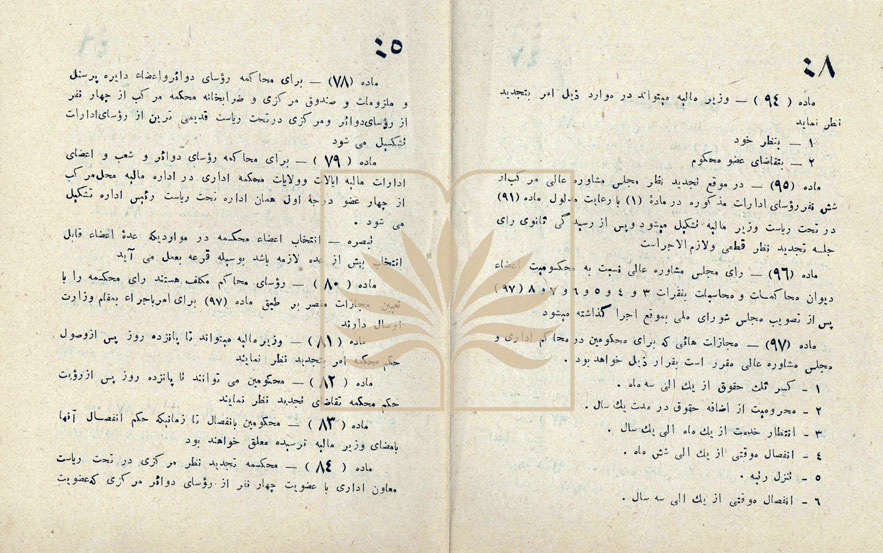 ٤٨
ماده (٩٤) — وزیر مالیه میتواند در موارد ذیل امر بتجدید
نظر نماید
١ — بنظر خود
٢ — بتقاضای عضو محکوم
ماده (٩٥) — در موقع تجدید نظر مجلس مشاوره عالی مرکب از
شش نفر رؤسای ادارات مذکوره در مادهٔ (١) با رعایت مدلول ماده (٩١)
در تحت ریاست وزیر مالیه تشکیل میشود و پس از رسیدگی ثانوی رای
جلسه تجدید نظر قطعی ولازم الاجراست
ماده (٩٦) — رای مجلس مشاوره عالی نسبت به محکومیت اعضاء
دیوان محاکمات و محاسبات بفقرات ٣ و ٤ و ٥ و ٦ و ٧ و ٨ (٩٧)
پس از تصویب مجلس شورای ملی بموقع اجرا گذاشته میشود
ماده (٩٧) — مجازات هائی که برای محکومین در محاکم اداری و
مجلس مشاوره عالی مقرر است بقرار ذیل خواهد بود .
١ - کسر ثلث حقوق از یك الی سه ماه .
٢ - محرومیت از اضافه حقوق در مدت یك سال .
٣ - انتظار خدمت از یك ماه الی یك سال .
٤ - انفصال موقتی از یك الی شش ماه .
٥ - تنزل رتبه .
٦ - انفصال موقتی از یك الی سه سال .
٤٥
ماده (٧٨) — برای محاکمه رؤسای دوائر واعضاء دایره پرسنل
و ملزومات و صندوق مرکزی و ضرابخانه محکمه مرکب از چهار نفر
از رؤسای دوائر ومرکزی درتحت ریاست قدیمی ترین از رؤسای ادارات
تشکیل می شود
ماده (٧٩) — برای محاکمه رؤسای دوائر و شعب و اعضای
ادارات مالیه ایالات وولایات محکمه اداری در اداره مالیه محل مرکب
از چهار عضو درجهٔ اول همان اداره تحت ریاست رئیس اداره تشکیل
می شود .
تبصره — انتخاب اعضاء محکمه در مواردیکه عدهٔ اعضاء قابل
انتخاب بیش از عده لازمه باشد بوسیله قرعه بعمل می آید
ماده (٨٠) — رؤسای محاکم مکلف هستند رای محکمه را با
تعیین مجازات مقصر بر طبق ماده (٩٧) برای امر باجراء بمقام وزارت
ارسال دارند
ماده (٨١) — وزیر مالیه میتواند تا پانزده روز پس ازوصول
حکم محکمه امر بتجدید نظر نمایند
ماده (٨٢) — محکومین می توانند تا پانزده روز پس ازرؤیت
حکم محکمه تقاضای تجدید نظر نمایند
ماده (٨٣) — محکومین بانفصال تا زمانیکه حکم انفصال آنها
بامضای وزیر مالیه نرسیده معلق خواهند بود
ماده (٨٤) — محکمه تجدید نظر مرکزی در تحت ریاست
معاون اداری با عضویت چهار نفر از رؤسای دوائر مرکزی که عضویت